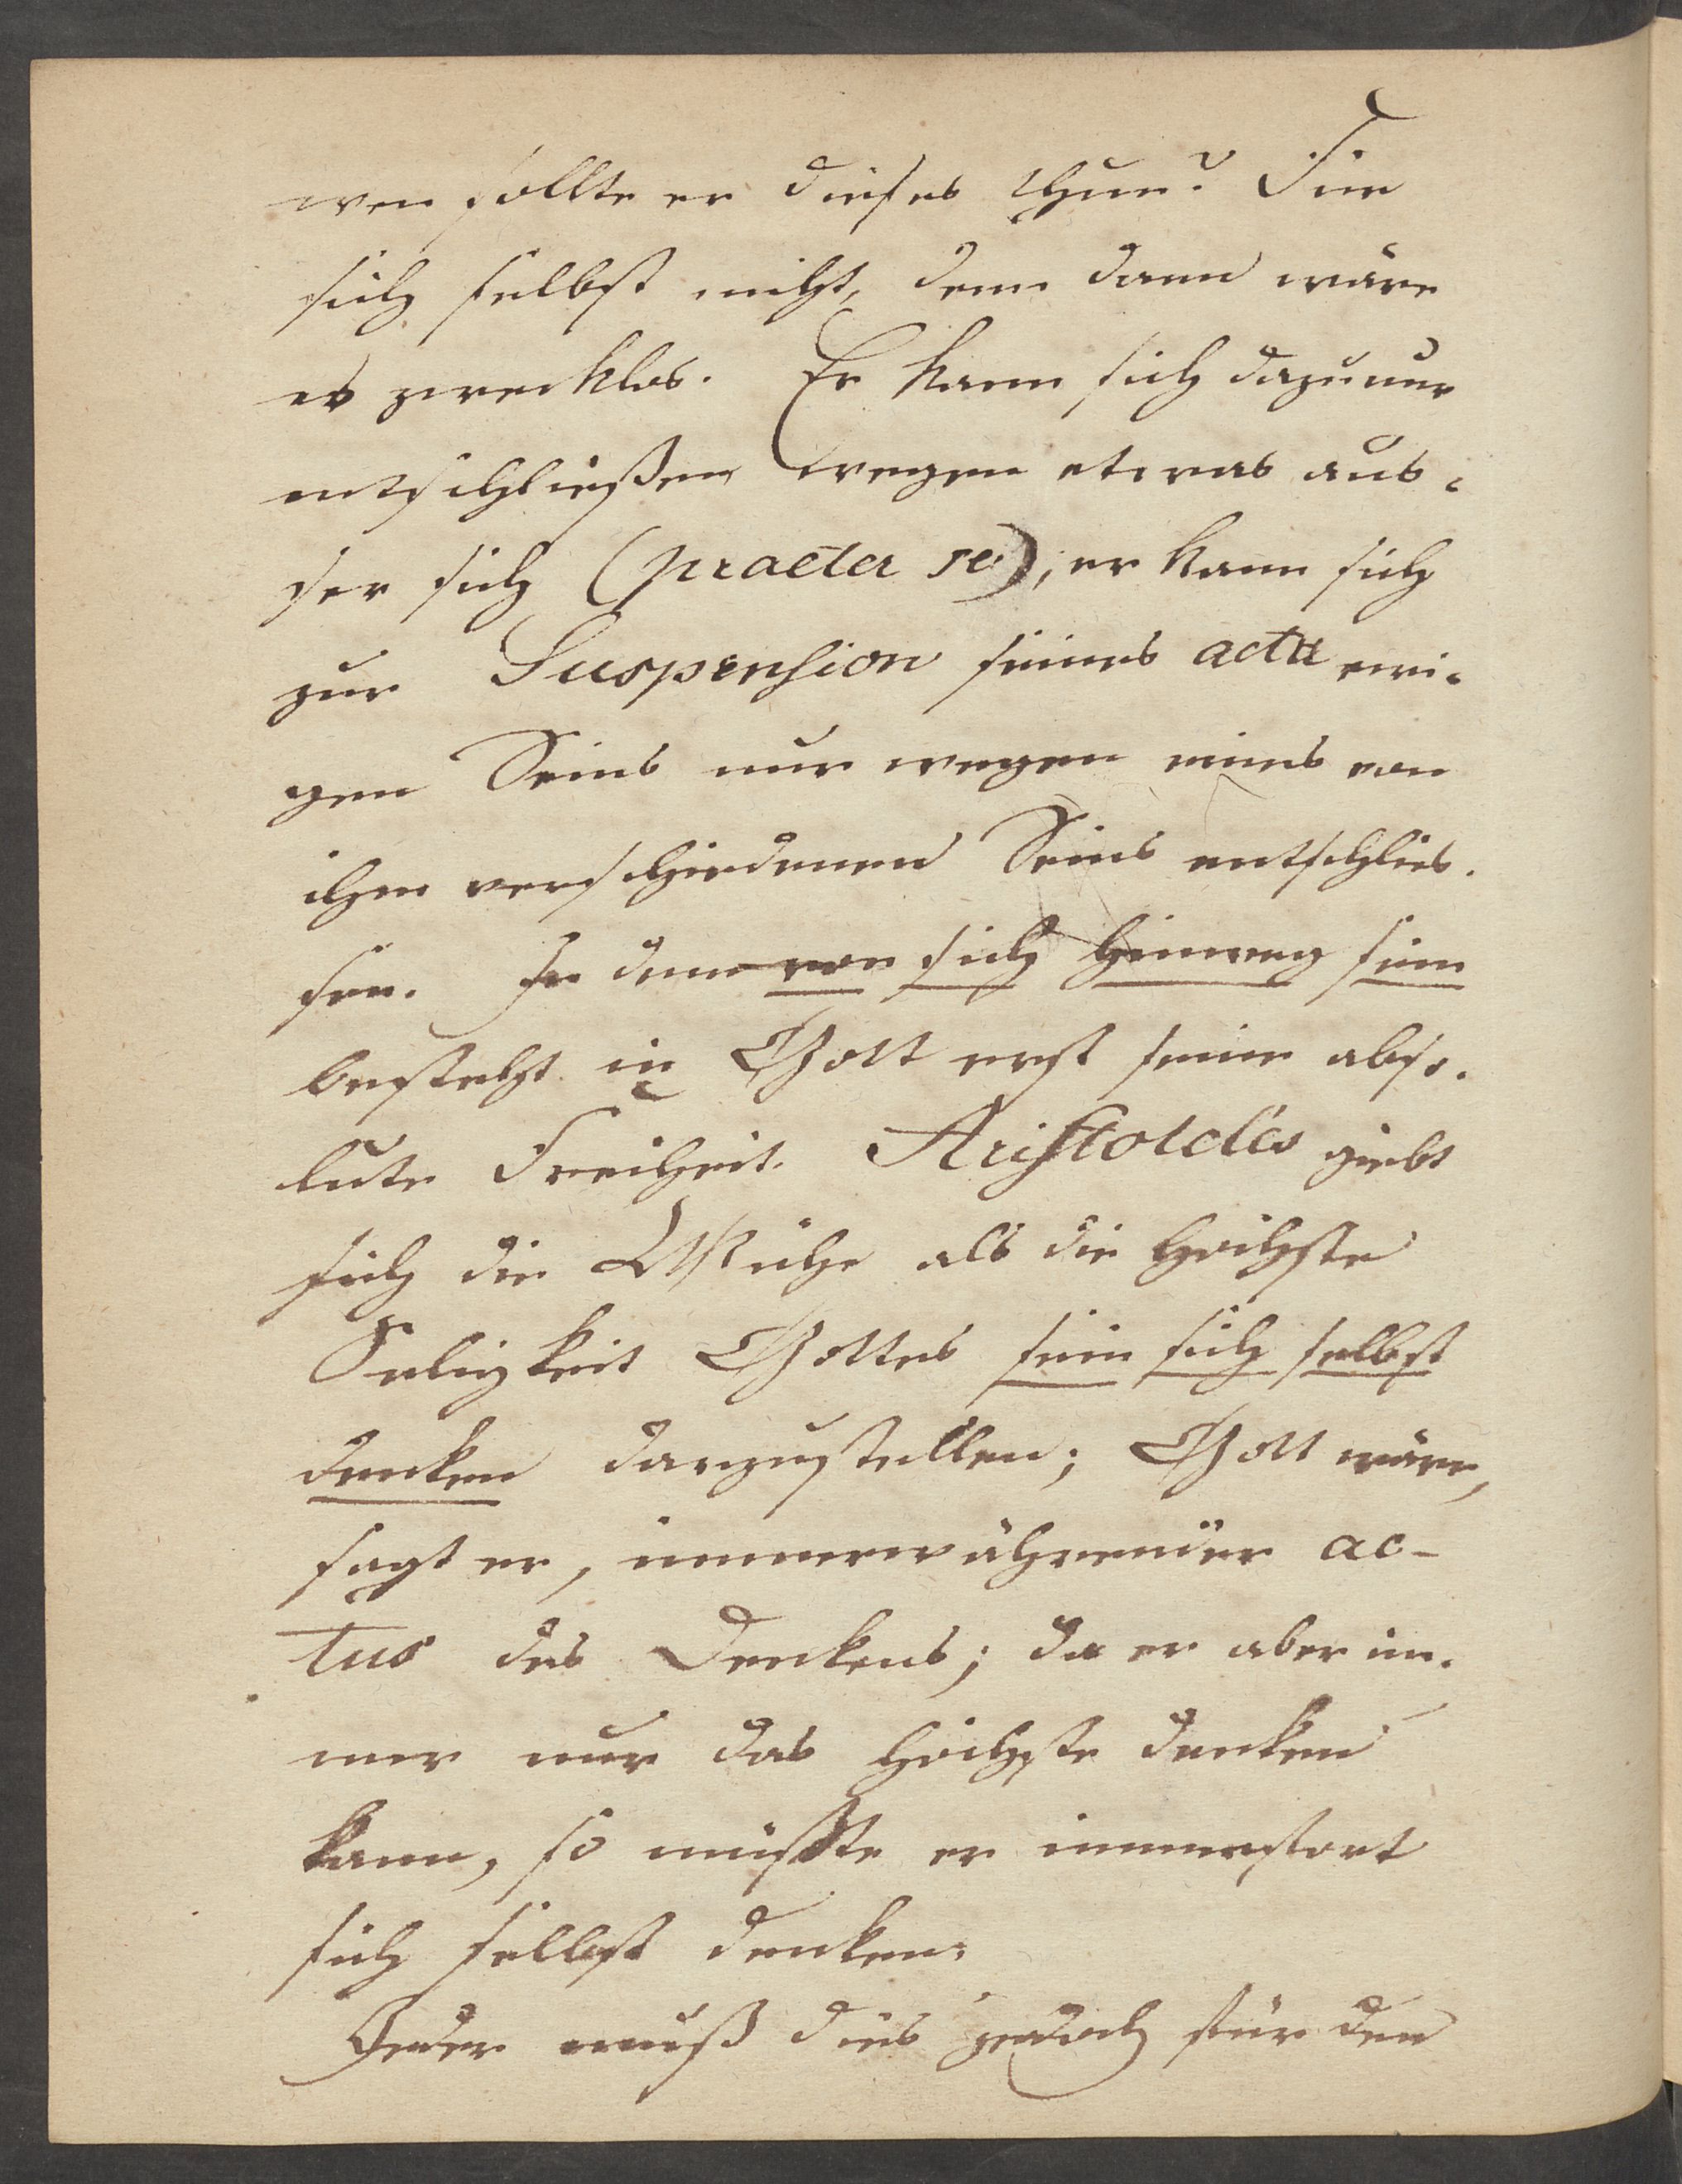 wen sollte er dieses thun? Für
sich selbst nicht, denn dann wäre
es zwecklos. Er kann sich dazu nur
entschließen wegen etwas aus-
ser sich (praeter se); er kann sich
zur Suspension seines actu ewi-
gen Seins nur wegen eines von
ihm verschiedenen Seins entschlies-
sen. In dem von sich hinweg sein
besteht in Gott erst seine abso-
lute Freiheit. Aristoteles giebt
sich die Mühe als die höchste
Seligkeit Gottes sein sich selbst
denken darzustellen; Gott wäre,
sagt er, immerwährender ac-
tus des Denkens; da er aber im-
mer nur das höchste denken
kann, so müsste er immerfort
sich selbst denken.
Jeder muß dies jedoch für den